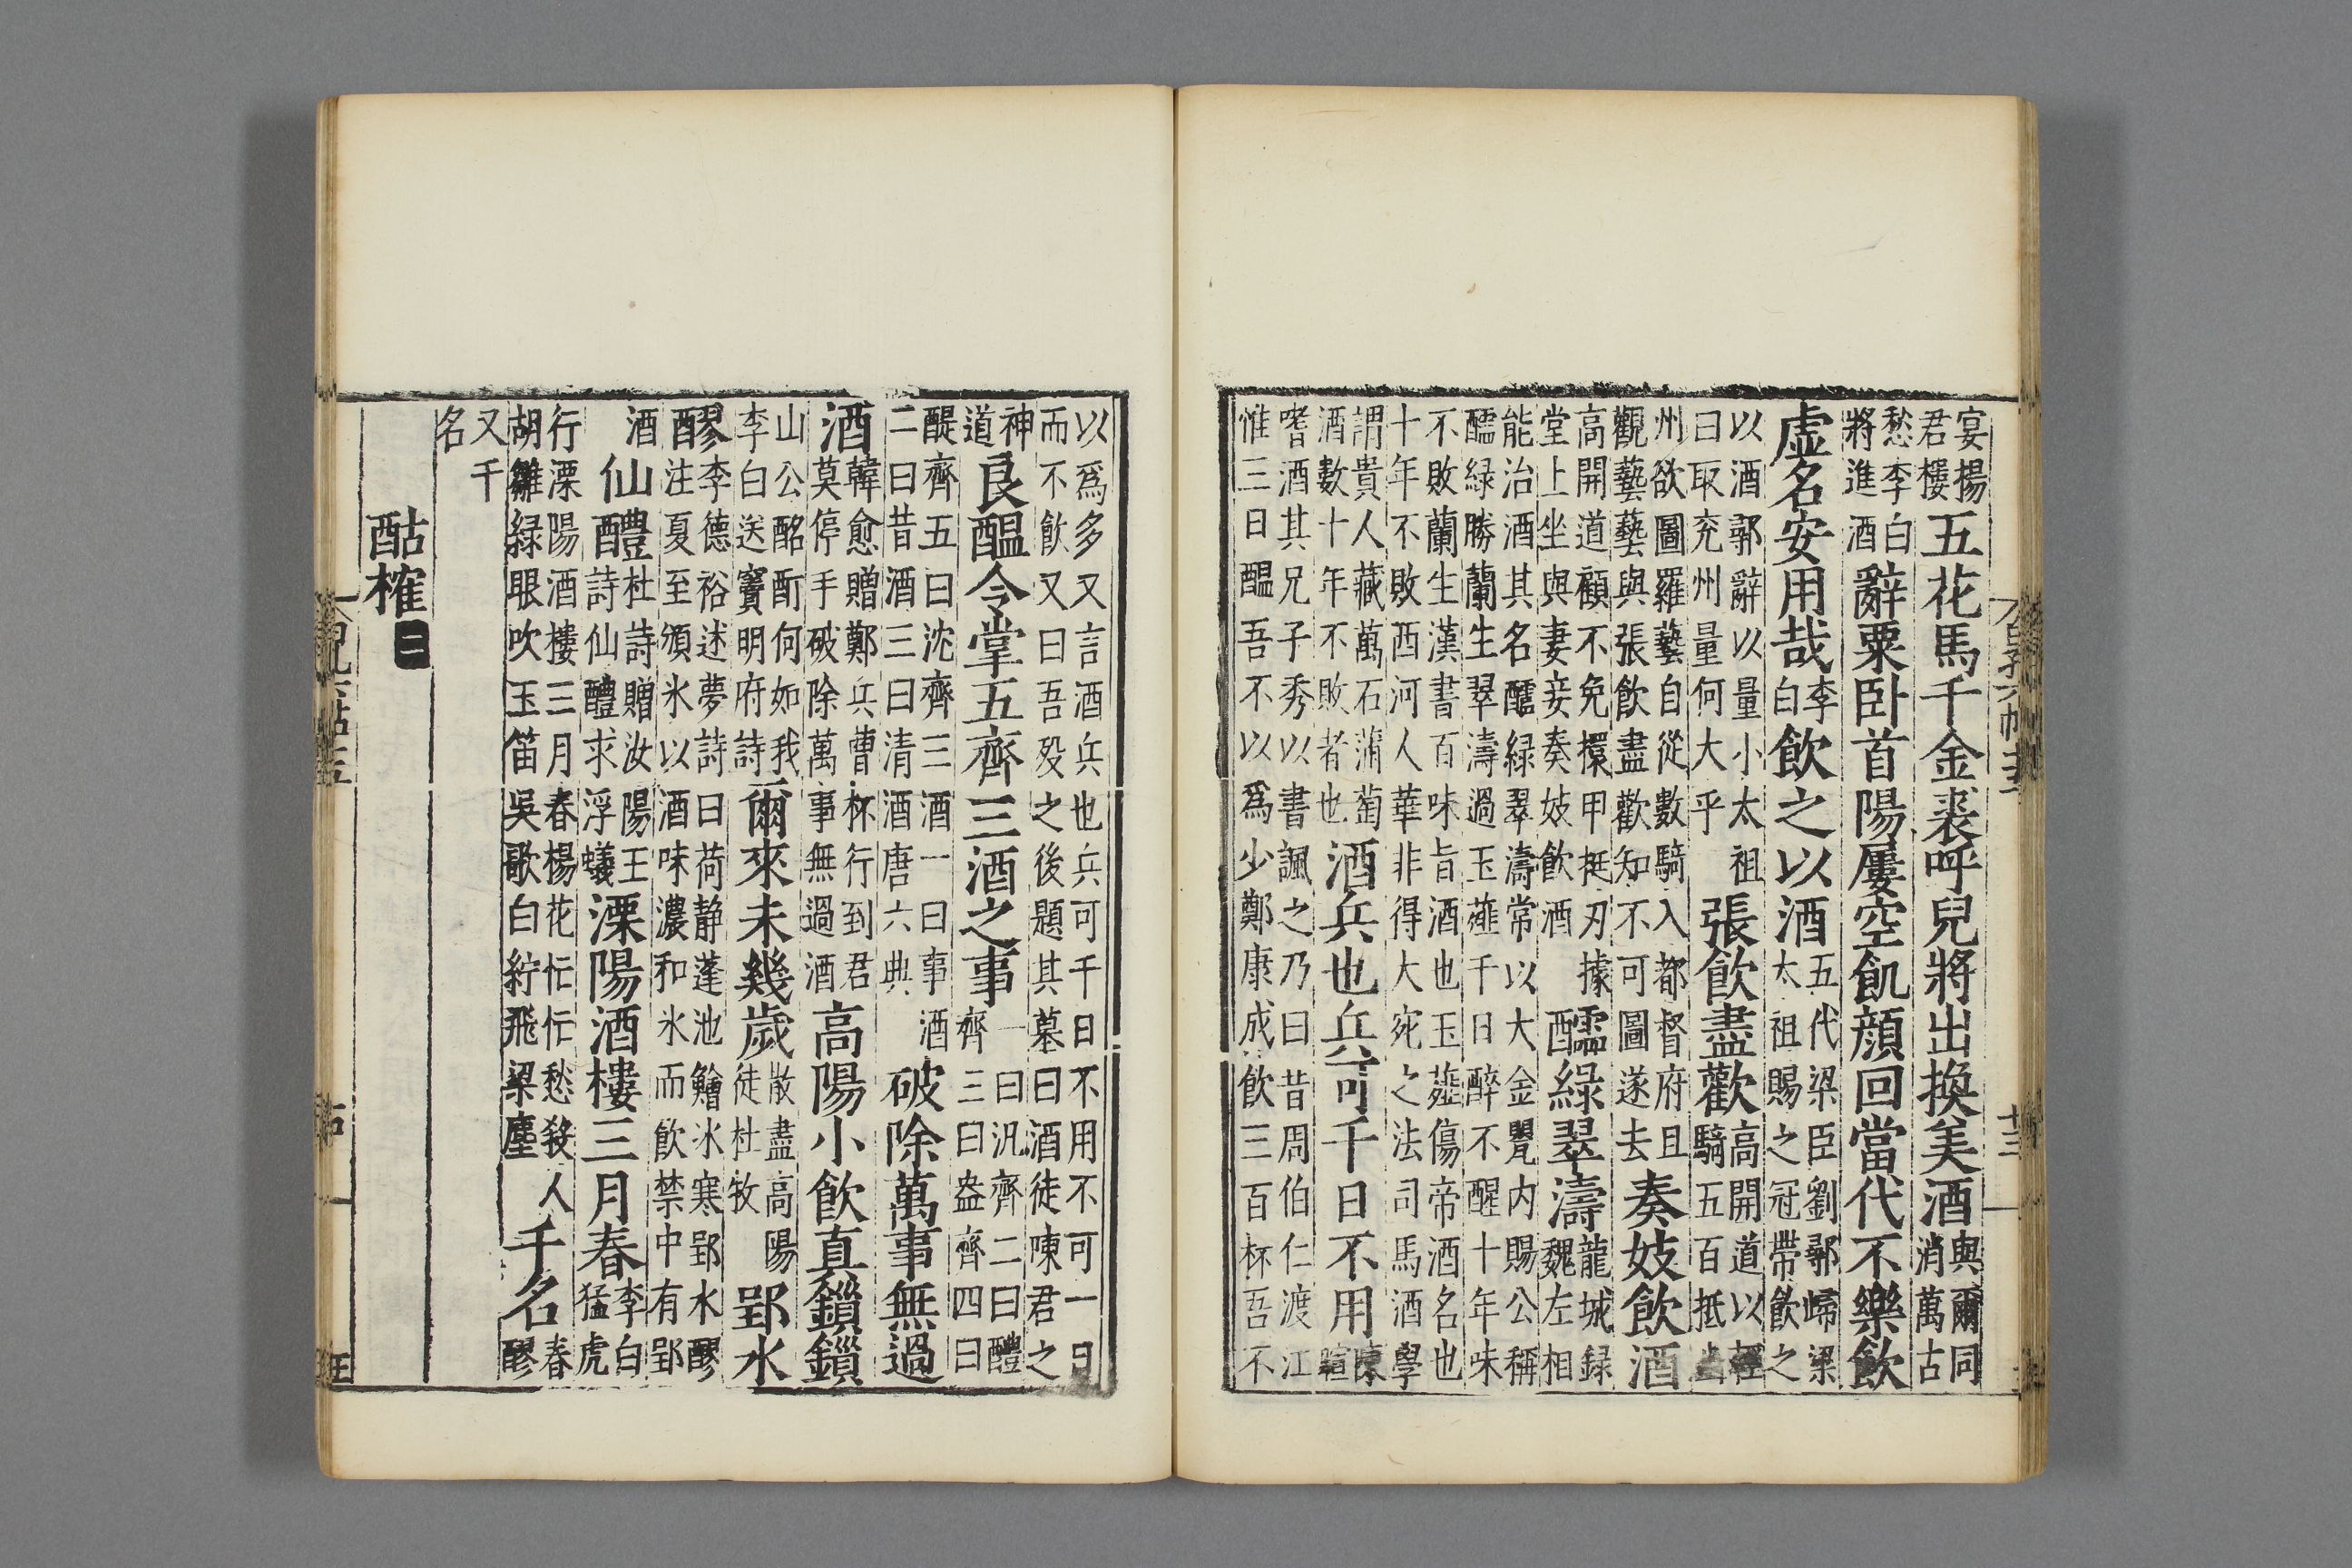 宴揚君樓五花馬千金裘呼兒將出換美酒與爾同消萬古
愁李白將進酒辭粟卧首陽屢空飢顔回當代不樂飲
虛名安用哉李白飲之以酒五代梁臣劉鄩歸梁太祖賜之冠帶飲之
以酒鄩辭以量小太祖曰取兖州量何大乎張飲盡歡高開道以輕騎五百抵幽
州欲圖羅藝自從數騎入都督府且觀藝藝與張飲盡歡知不可圖遂去奏妓飲酒
高開道顧不免擐甲挺刃據堂上坐與妻妾奏妓飲酒醹緑翠濤龍城録魏左相
能治酒其名醹緑翠濤常以大金罌内賜公稱醹緑勝蘭生翠濤過玉薤千日醉不醒十年味
不敗蘭生漢書百味旨酒也玉薤傷帝酒名也十年不敗酉河人華非得大宛之法司馬酒學
謂貴人藏萬石蒲萄酒數十年不敗者也酒兵也兵可千日不用陳暄
嗜酒其兄子秀以書諷之乃曰昔周伯仁渡江惟三日醖吾不以爲少鄭康成飲三百杯吾不
以爲多又言酒兵也兵可千日不用不可一日而不飲又曰吾歿之後題其墓曰酒徒陳君之
神道良醖令掌五齊三酒之事一曰汎齊二曰醴齊三曰盎齊四曰
醍齊五曰沈齊三酒一曰事酒二曰昔酒三曰清酒唐六典破除萬事無過
酒韓愈贈鄭兵曹杯行到君莫停手破除萬事無過酒高陽小飲真鎻鎻
山公酩酊何如我李白送竇明府詩爾來未幾歲散盡高陽徒杜牧郢水
醪李德裕述夢詩曰荷静蓬池鱠氷寒郢水醪注夏至頒氷以酒味濃和氷而飲禁中有郢
酒仙醴杜詩贈汝陽王詩仙醴求浮蟻溧陽酒樓三月春李白猛虎
行溧陽酒樓三月春楊花忙忙愁殺人胡雛緑眼吹玉笛吳歌白紵飛梁塵千名春醪
又千名
酤榷二